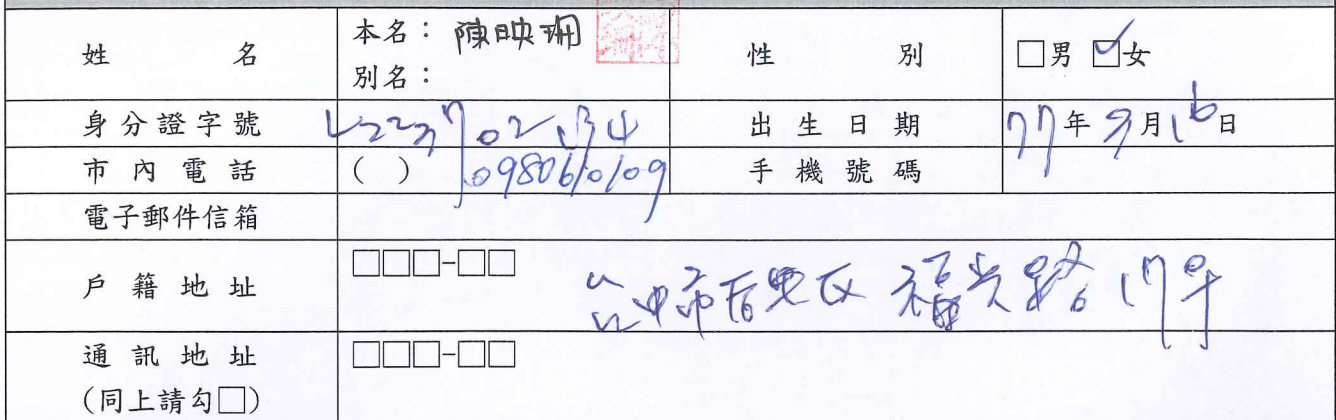 姓名 本名：陳映珊 性別 □男 ☑女
別名：
身分證字號 L223702134 出生日期 77年9月16日
市內電話 ( ) 0980610109 手機號碼
電子郵件信箱
戶籍地址 □□□-□□
台中市 區 福 路 17號
通訊地址 □□□-□□
(同上請勾□)